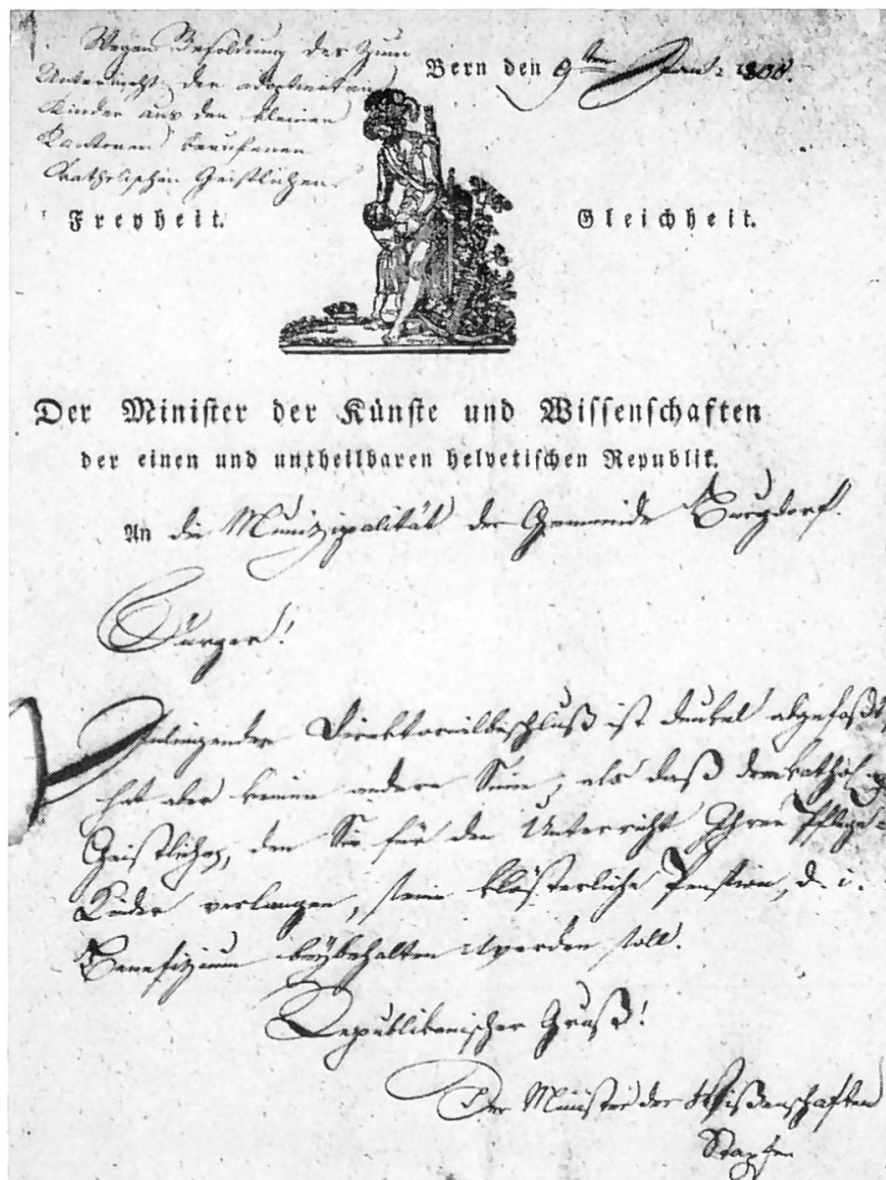 Wegen Besoldung des zum
Unterricht der adoptierten
Kinder aus den kleinen
Kantonen berufenen
Katholischen Geistlichen.
Bern den 9ten 1800.
Freyheit.
Gleichheit.
Der Minister der Künste und Wissenschaften
der einen und untheilbaren helvetischen Republik.
An die Munizipalität der Gemeinde Burgdorf.
Bürger!
Direktorialbeschluß ist dunkel abgefaßt,
hat aber keinen andern Sinn, als daß dem kathol.
Geistlichen, den Sie für den Unterricht Ihrer Pflege-
Kinder verlangen, seine klösterliche Pension, d. i.
Benefizium beybehalten werden soll.
Republikanischer Gruß!
Der Minister der Wißenschaften
Stapfer